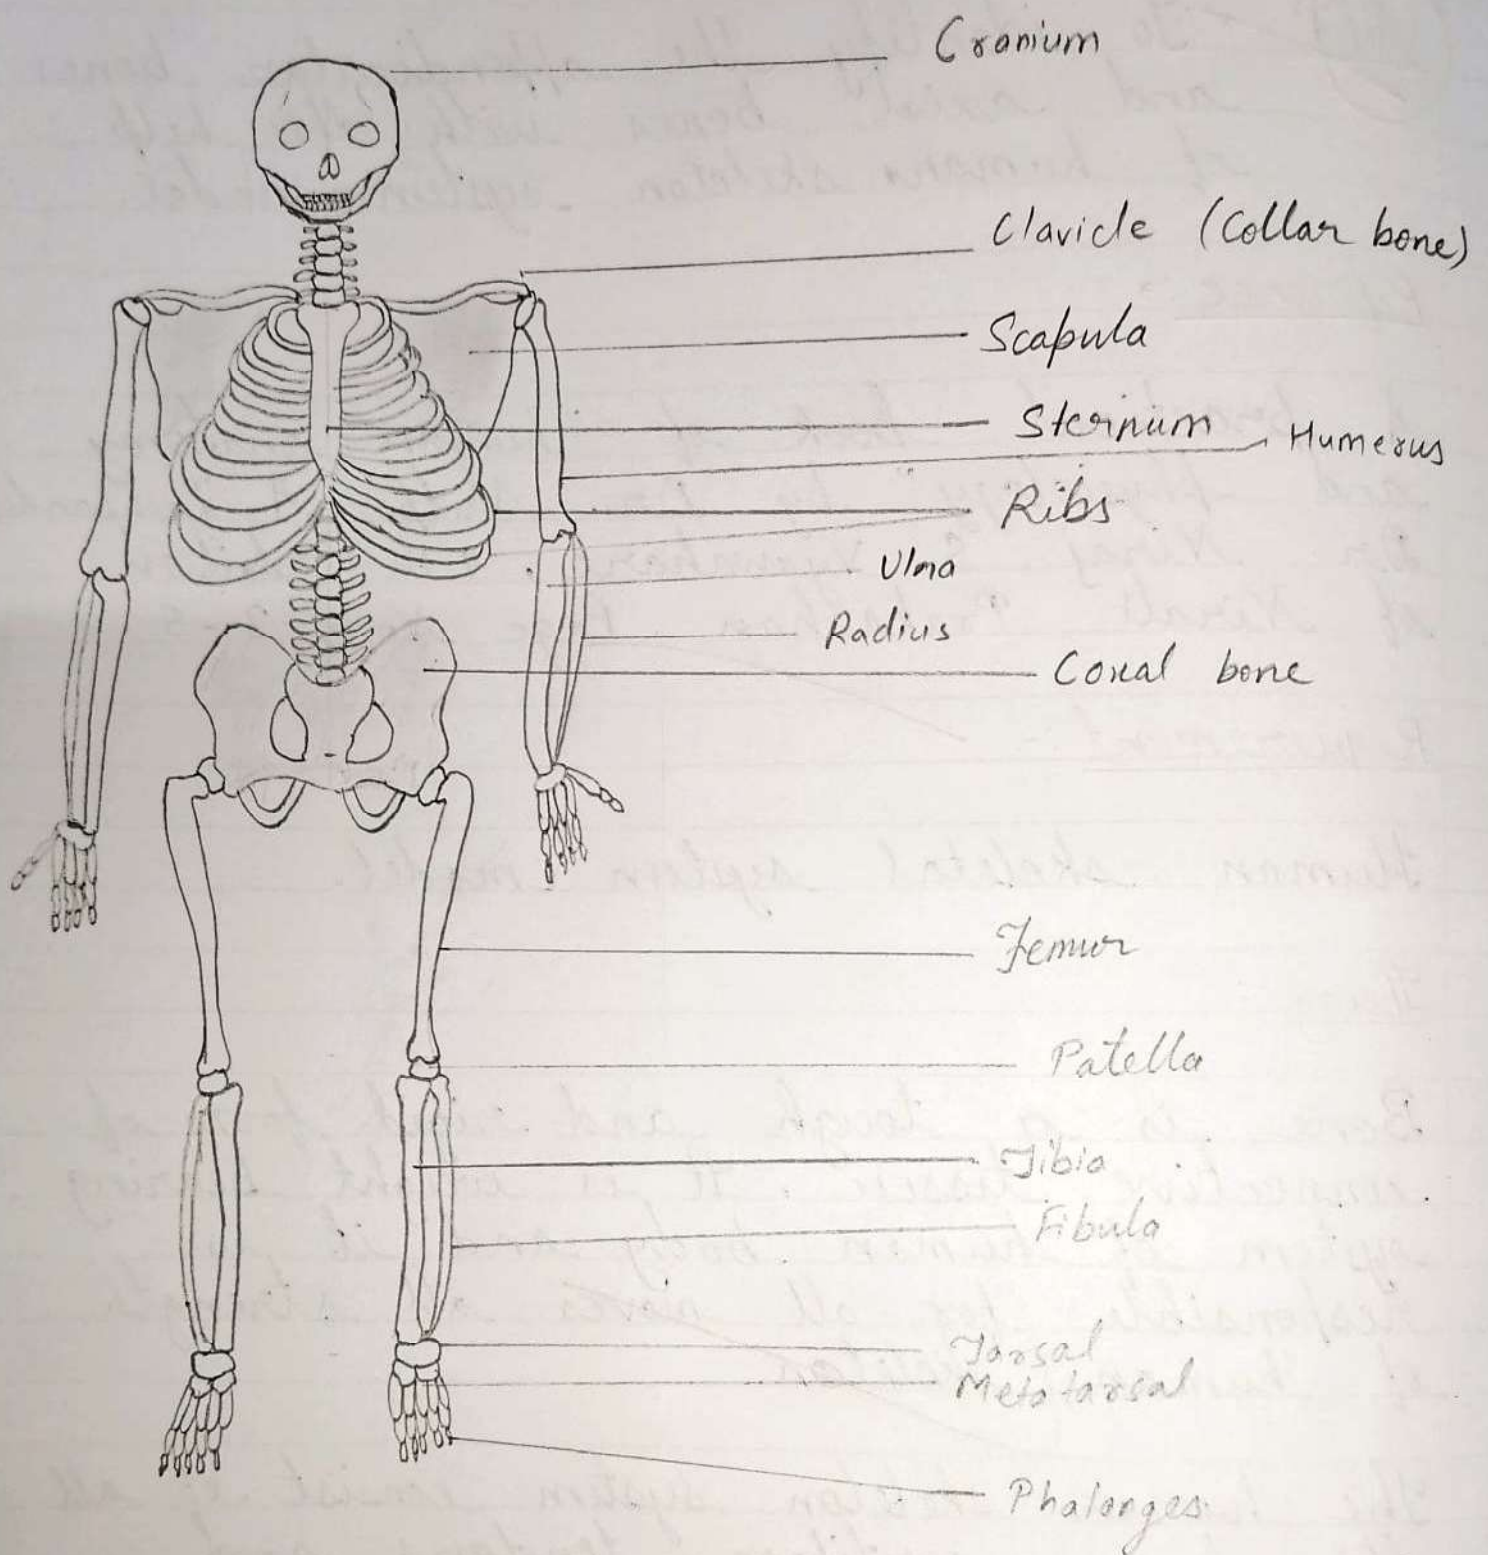 Cranium
Clavicle (Collar bone)
Scapula
Sternum
Humerus
Ribs
Ulna
Radius
Coxal bone
Femur
Patella
Tibia
Fibula
Tarsal
Metatarsal
Phalanges